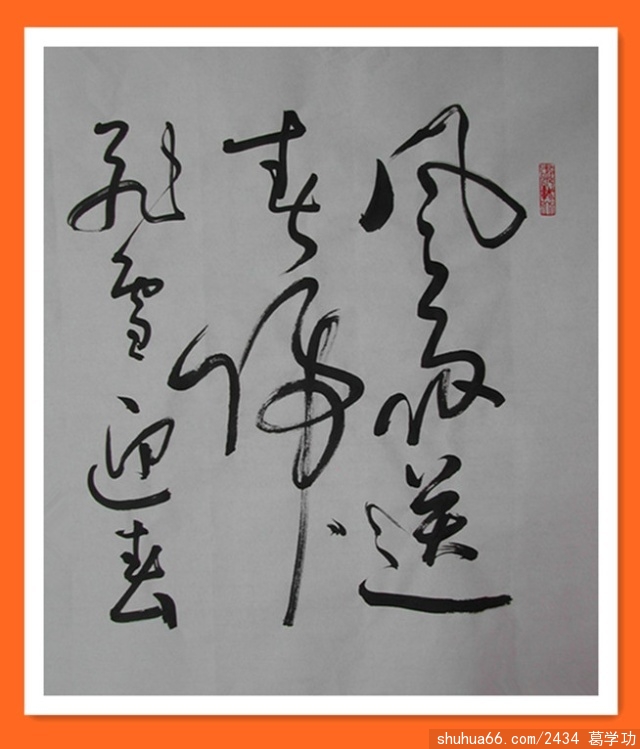 风雨送
春归
飞雪迎春
shuhua66.com/2434 葛学功